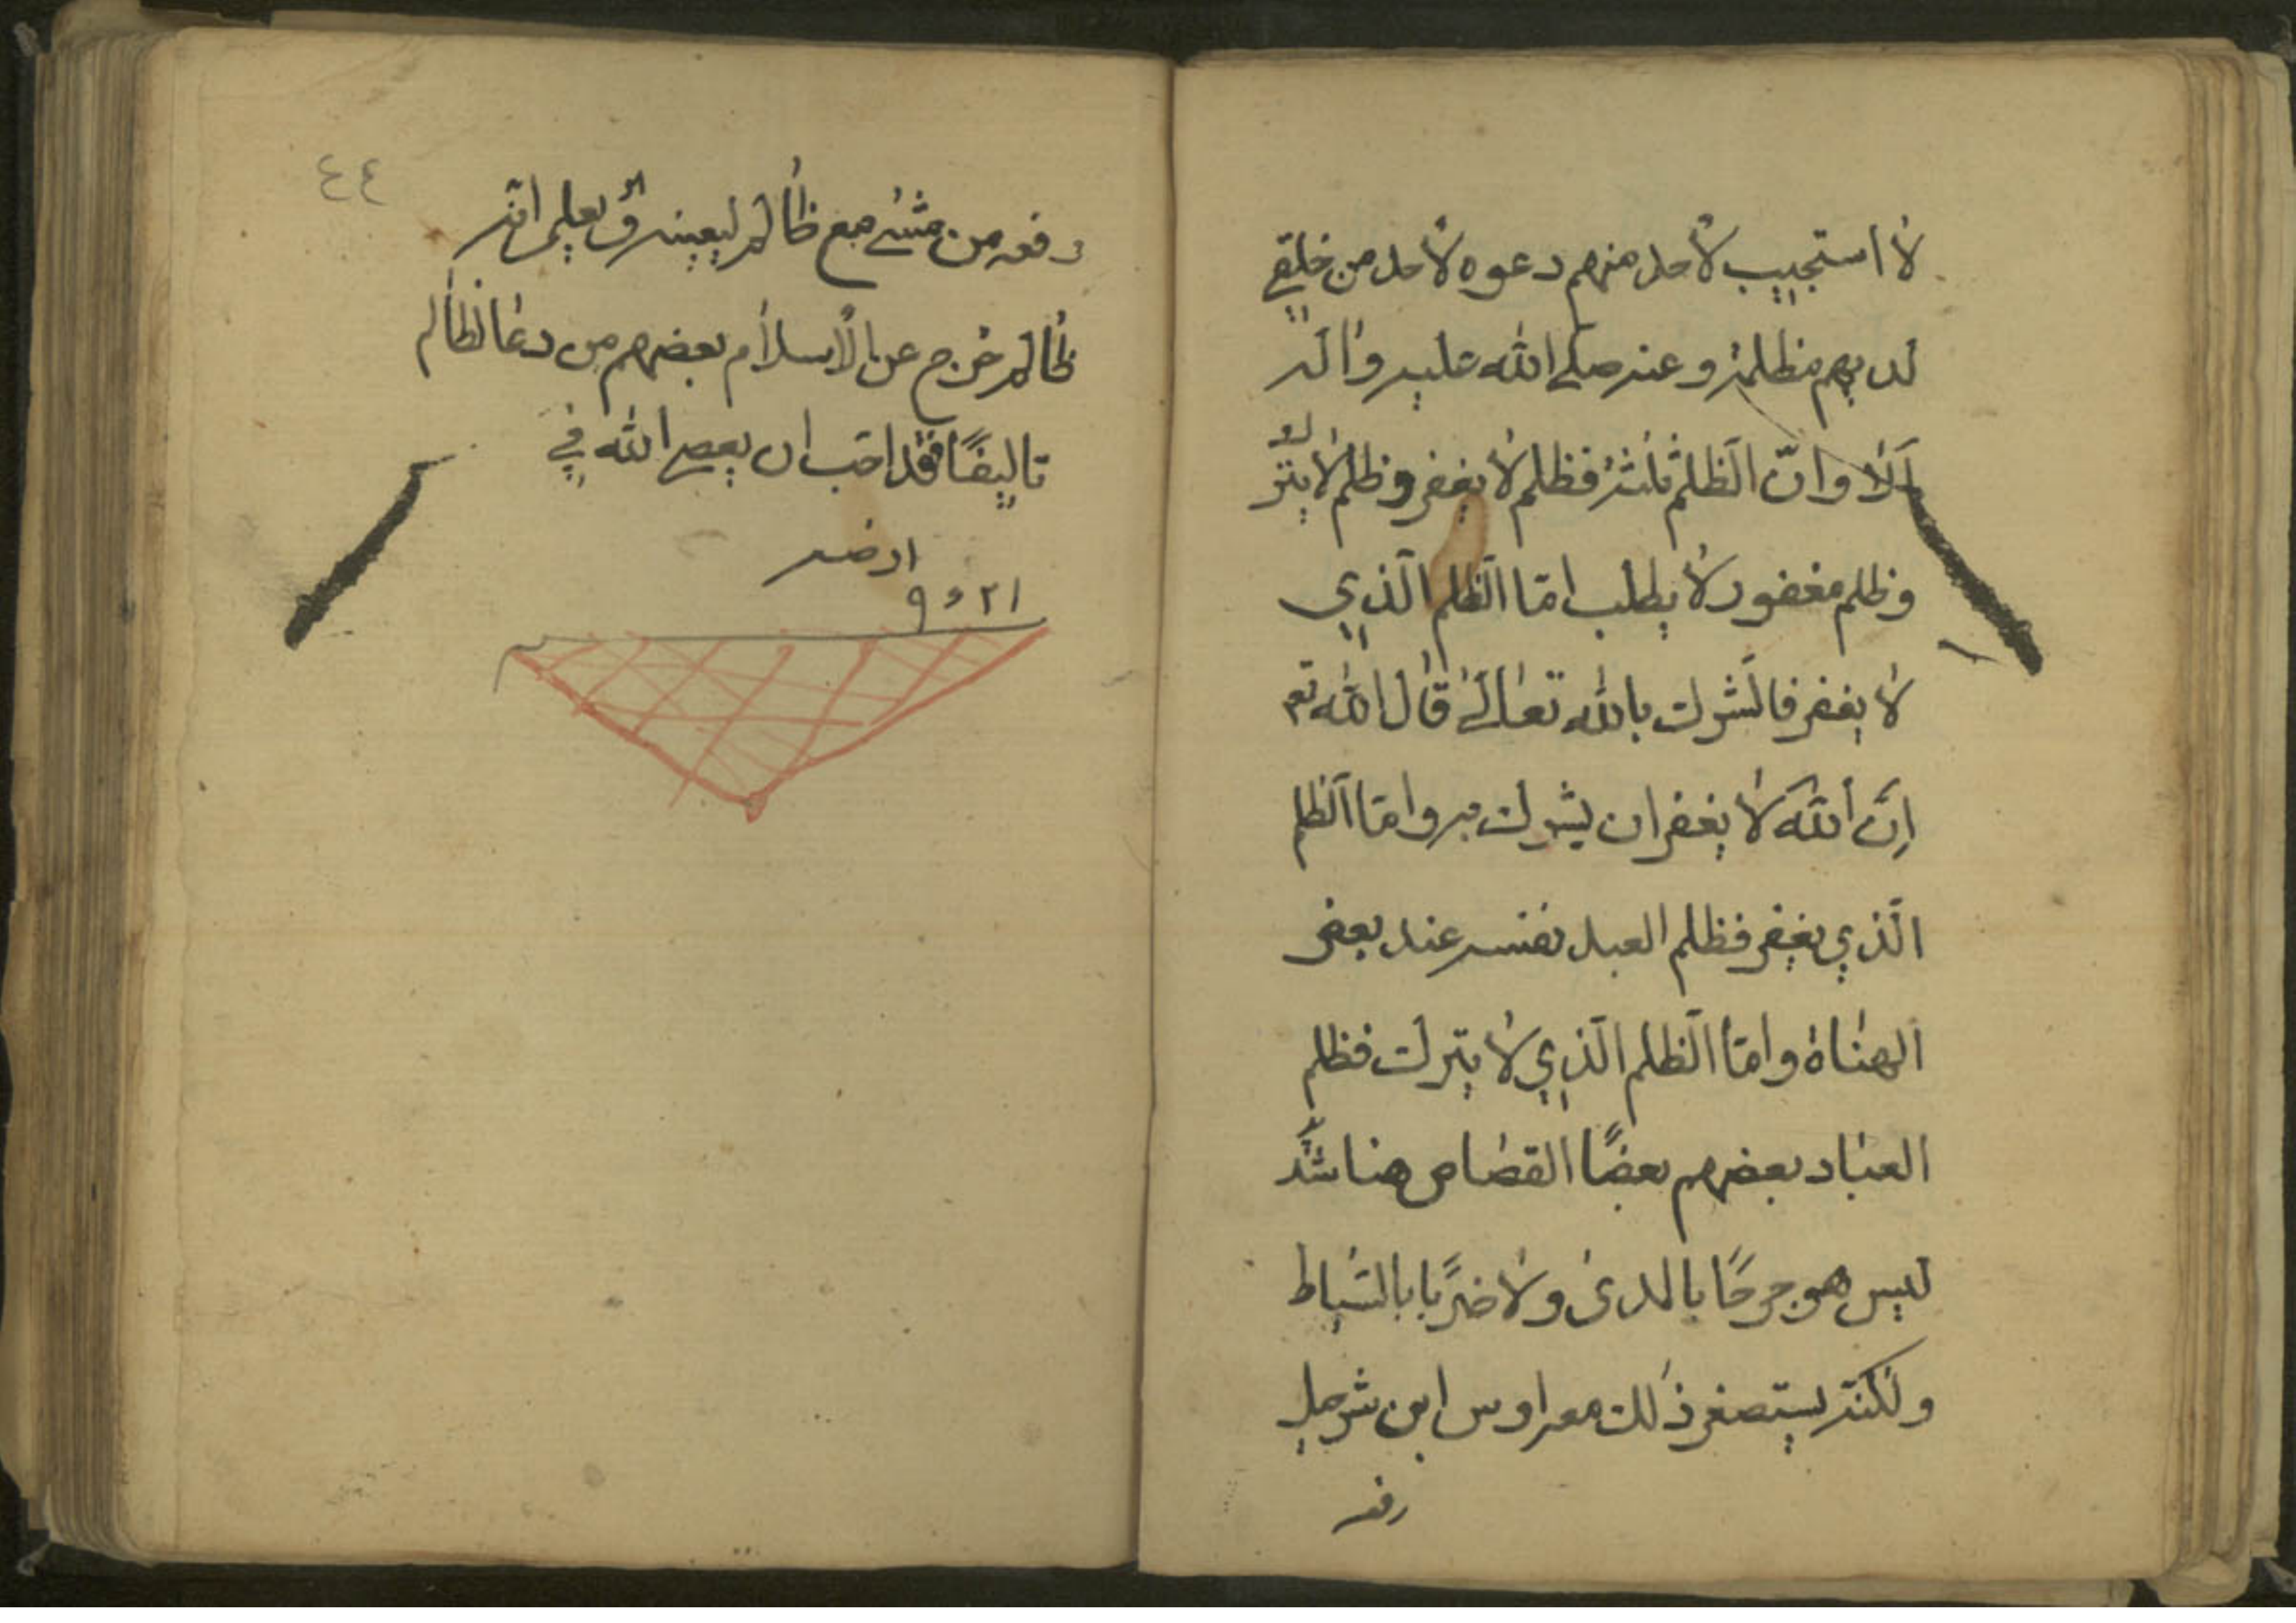 لا استجيب لاحد منهم دعوه لاحد من خلقي
لديهم مظلمة وعنه صلى الله عليه واله
الا وان الظلم ثلثة فظلم لا يغفر وظلم لا يترك
وظلم مغفور لا يطلب اما الظلم الذي
لا يغفر فالشرك بالله تعالى قال الله تعم
ان الله لا يغفر ان يشرك به واما الظلم
الذي يغفر فظلم العبد نفسه عند بعض
الهناة واما الظلم الذي لا يترك فظلم
العباد بعضهم بعضًا القصاص هنا شديد
ليس هو جرحًا بالمدى ولا ضربًا بالسياط
ولكنه يستصغر ذلك معه اوس ابن شرحيل
رفعه
٤٤
رفعه من مشى مع ظالم ليعينه وهو يعلم انه
ظالم خرج عن الاسلام بعضهم من دعا لظالم
فقد احب ان يعصى الله في
ارضه